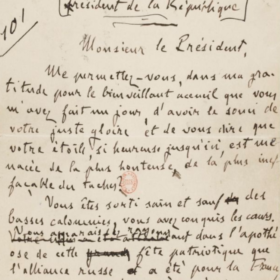 Président de la République]
101
Monsieur le Président,
Me permettez-vous, dans ma gra-
titude pour le bienveillant accueil que vous
m'avez fait un jour, d'avoir le souci de
votre juste gloire et de vous dire que
votre étoile, si heureuse jusqu'ici, est me-
nacée de la plus honteuse, de la plus inef-
façable des taches?
Vous êtes sorti sain et sauf des
basses calomnies, vous avez conquis les cœurs.
Vous apparaissez rayonnant dans l'apothé-
ose de cette fête patriotique que
l'alliance russe a été pour la